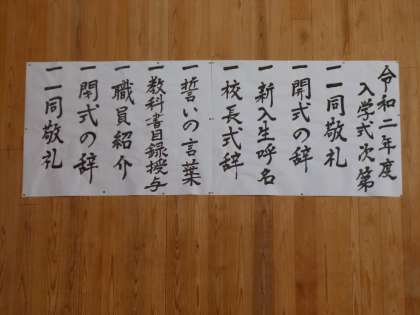 令和二年度
入学式次第
一 一同敬礼
一 開式の辞
一 新入生呼名
一 校長式辞
一 誓いの言葉
一 教科書目録授与
一 職員紹介
一 閉式の辞
一 一同敬礼